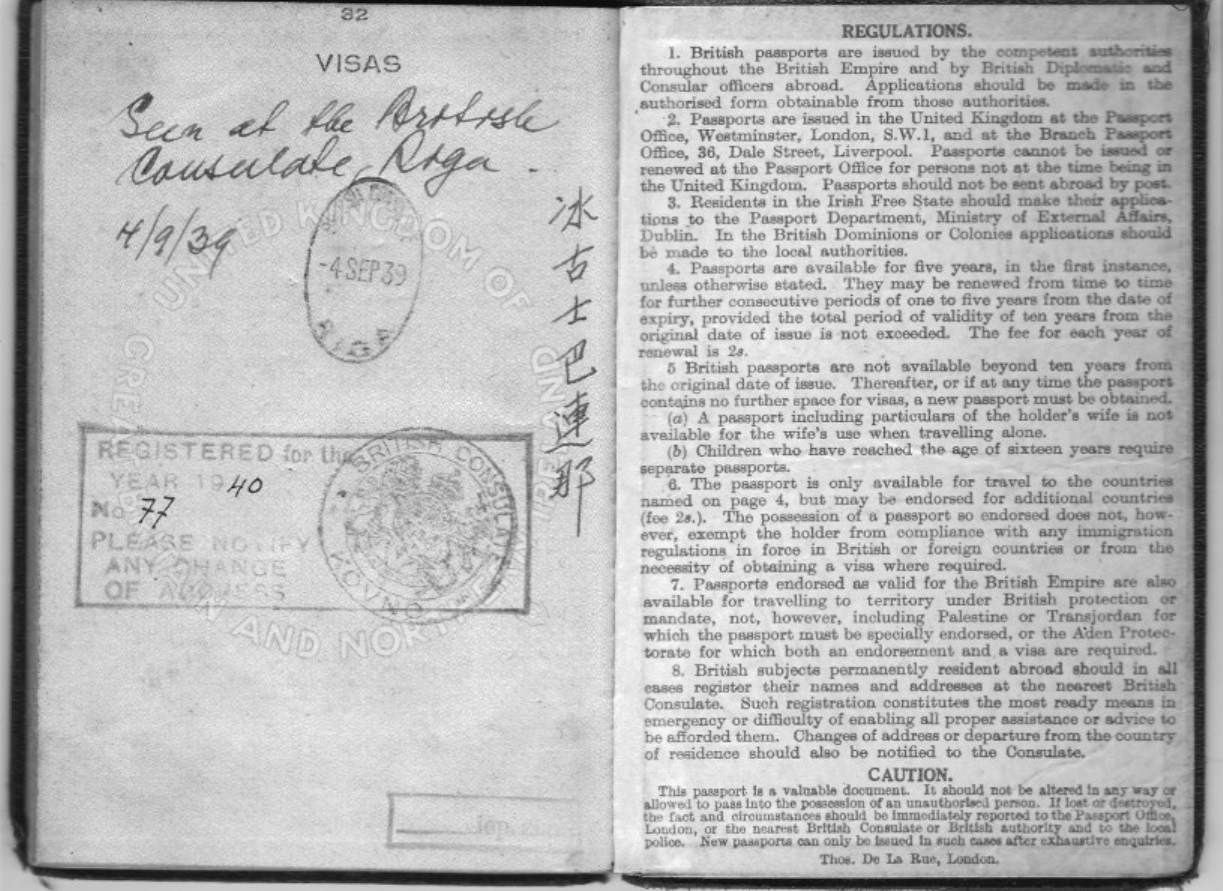 32
VISAS
Seen at the British
Consulate, Riga.
4/9/39
-4 SEP 39
RIGA
冰古士巴連那
UNITED KINGDOM OF
GREAT
AND NORTH
REGISTERED for the
YEAR 1940
No 77
PLEASE NOTIFY
ANY CHANGE
OF ADDRESS
BRITISH CONSULATE
KOVNO
REGULATIONS.
1. British passports are issued by the competent authorities
throughout the British Empire and by British Diplomatic and
Consular officers abroad. Applications should be made in the
authorised form obtainable from those authorities.
2. Passports are issued in the United Kingdom at the Passport
Office, Westminster, London, S.W.1, and at the Branch Passport
Office, 36, Dale Street, Liverpool. Passports cannot be issued or
renewed at the Passport Office for persons not at the time being in
the United Kingdom. Passports should not be sent abroad by post.
3. Residents in the Irish Free State should make their applica-
tions to the Passport Department, Ministry of External Affairs,
Dublin. In the British Dominions or Colonies applications should
be made to the local authorities.
4. Passports are available for five years, in the first instance,
unless otherwise stated. They may be renewed from time to time
for further consecutive periods of one to five years from the date of
expiry, provided the total period of validity of ten years from the
original date of issue is not exceeded. The fee for each year of
renewal is 2s.
5 British passports are not available beyond ten years from
the original date of issue. Thereafter, or if at any time the passport
contains no further space for visas, a new passport must be obtained.
(a) A passport including particulars of the holder's wife is not
available for the wife's use when travelling alone.
(b) Children who have reached the age of sixteen years require
separate passports.
6. The passport is only available for travel to the countries
named on page 4, but may be endorsed for additional countries
(fee 2s.). The possession of a passport so endorsed does not, how-
ever, exempt the holder from compliance with any immigration
regulations in force in British or foreign countries or from the
necessity of obtaining a visa where required.
7. Passports endorsed as valid for the British Empire are also
available for travelling to territory under British protection or
mandate, not, however, including Palestine or Transjordan for
which the passport must be specially endorsed, or the Aden Protec-
torate for which both an endorsement and a visa are required.
8. British subjects permanently resident abroad should in all
cases register their names and addresses at the nearest British
Consulate. Such registration constitutes the most ready means in
emergency or difficulty of enabling all proper assistance or advice to
be afforded them. Changes of address or departure from the country
of residence should also be notified to the Consulate.
CAUTION.
This passport is a valuable document. It should not be altered in any way or
allowed to pass into the possession of an unauthorised person. If lost or destroyed,
the fact and circumstances should be immediately reported to the Passport Office,
London, or the nearest British Consulate or British authority and to the local
police. New passports can only be issued in such cases after exhaustive enquiries.
Thos. De La Rue, London.